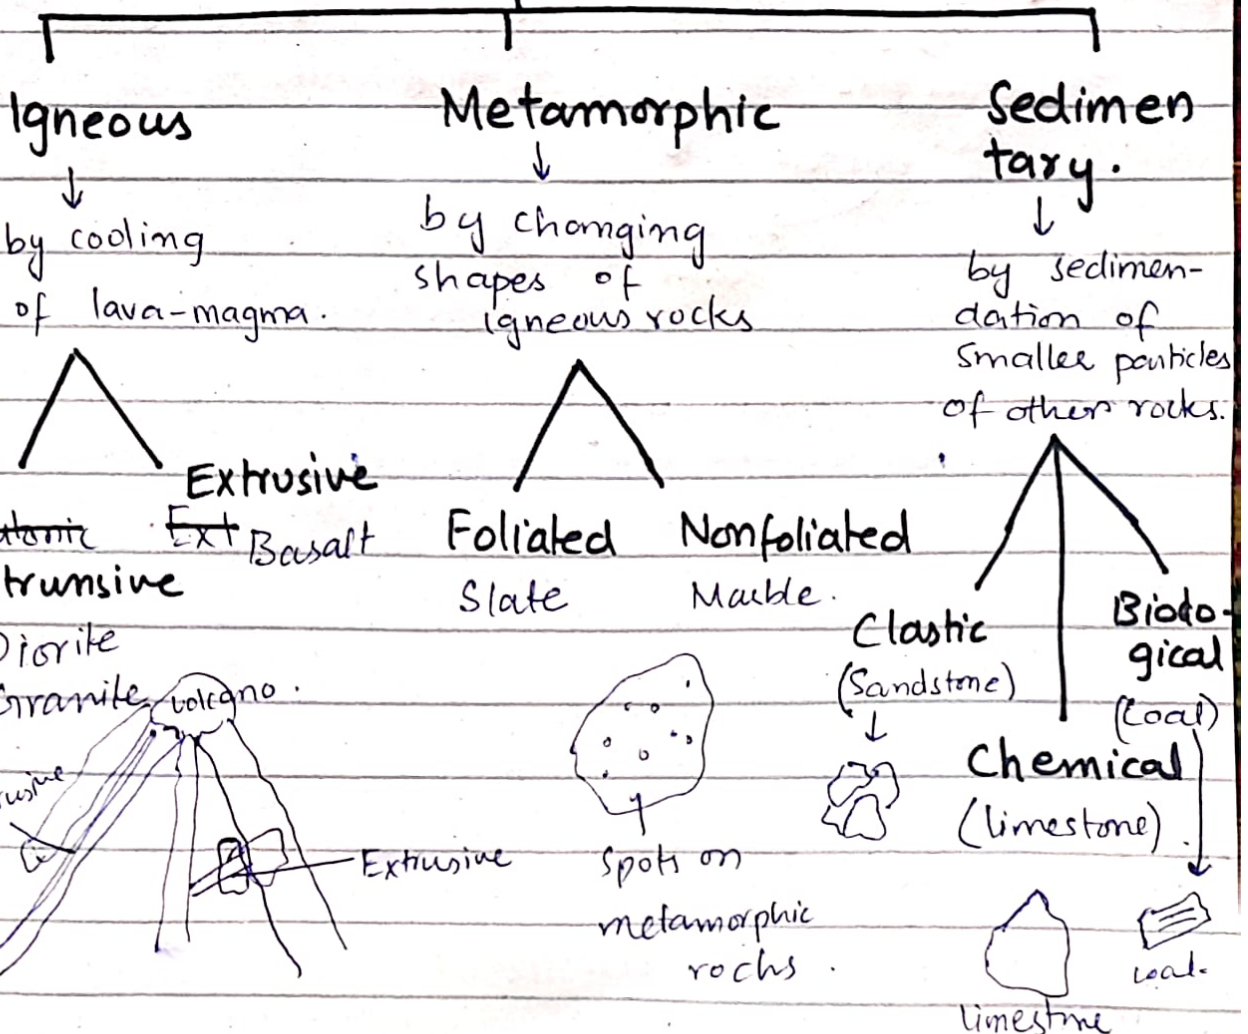 Igneous
by cooling
of lava-magma.
Extrusive
Ext Basalt
trunsive
Diorite
Granite
volcano.
Extrusive
Metamorphic
by changing
shapes of
igneous rocks
Foliated
Slate
Nonfoliated
Marble.
spots on
metamorphic
rocks.
Sedimen
tary.
by sedimen-
dation of
smaller particles
of other rocks.
Clastic
(Sandstone)
Chemical
(limestone)
limestone
Biolo-
gical
(Coal)
coal.